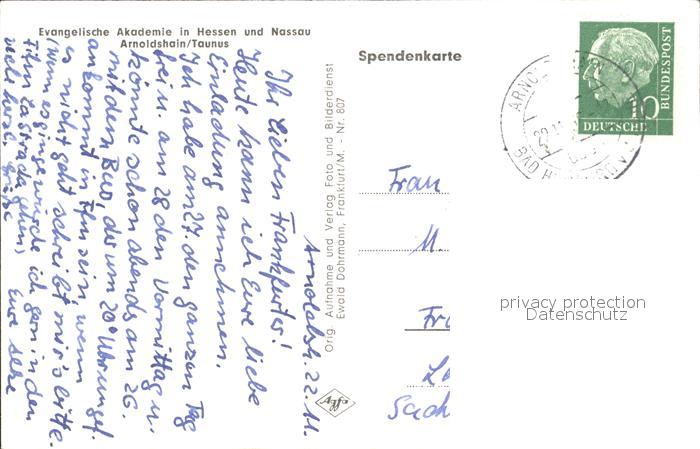 Evangelische Akademie in Hessen und Nassau
Arnoldshain/Taunus
Spendenkarte
Arnoldsh. 22. 11.
Ihr lieben Frankfurter!
Heute kann ich Eure liebe
Einladung annehmen.
Ich habe am 27. den ganzen Tag
frei u. am 28 den Vormittag u.
könnte schon abends am 26.
mit dem Bus, der um 20° Uhr ungef.
ankommt in Ffm sein, wenn
es nicht geht schreibt mir's bitte.
(Wenn es ginge würde ich gern in den
Film La Strada gehen) Eure
viele herzl. Grüße
Orig. Aufnahme und Verlag Foto und Bilderdienst
Ewald Dohrmann, Frankfurt/M. - Nr. 807
Agfa
DEUTSCHE
BUNDESPOST
10
ARNOL
22. 11.
BAD HO
Frau
M.
privacy protection
Datenschutz